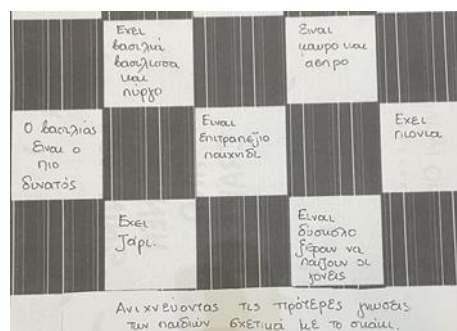 Έχει
βασιλιά
βασίλισσα
και
πύργο
Είναι
μαυρο και
άσπρο
Ο βασιλιάς
είναι ο
πιο
δυνατός
Είναι
επιτραπέζιο
παιχνίδι
Έχει
πιονια
Έχει
ζάρι.
Είναι
δύσκολο
ξέρουν να
παίζουν οι
γονείς
Ανιχνεύοντας τις πρότερες γνωσεις
των παιδιών σχετικά με το σκάκι.